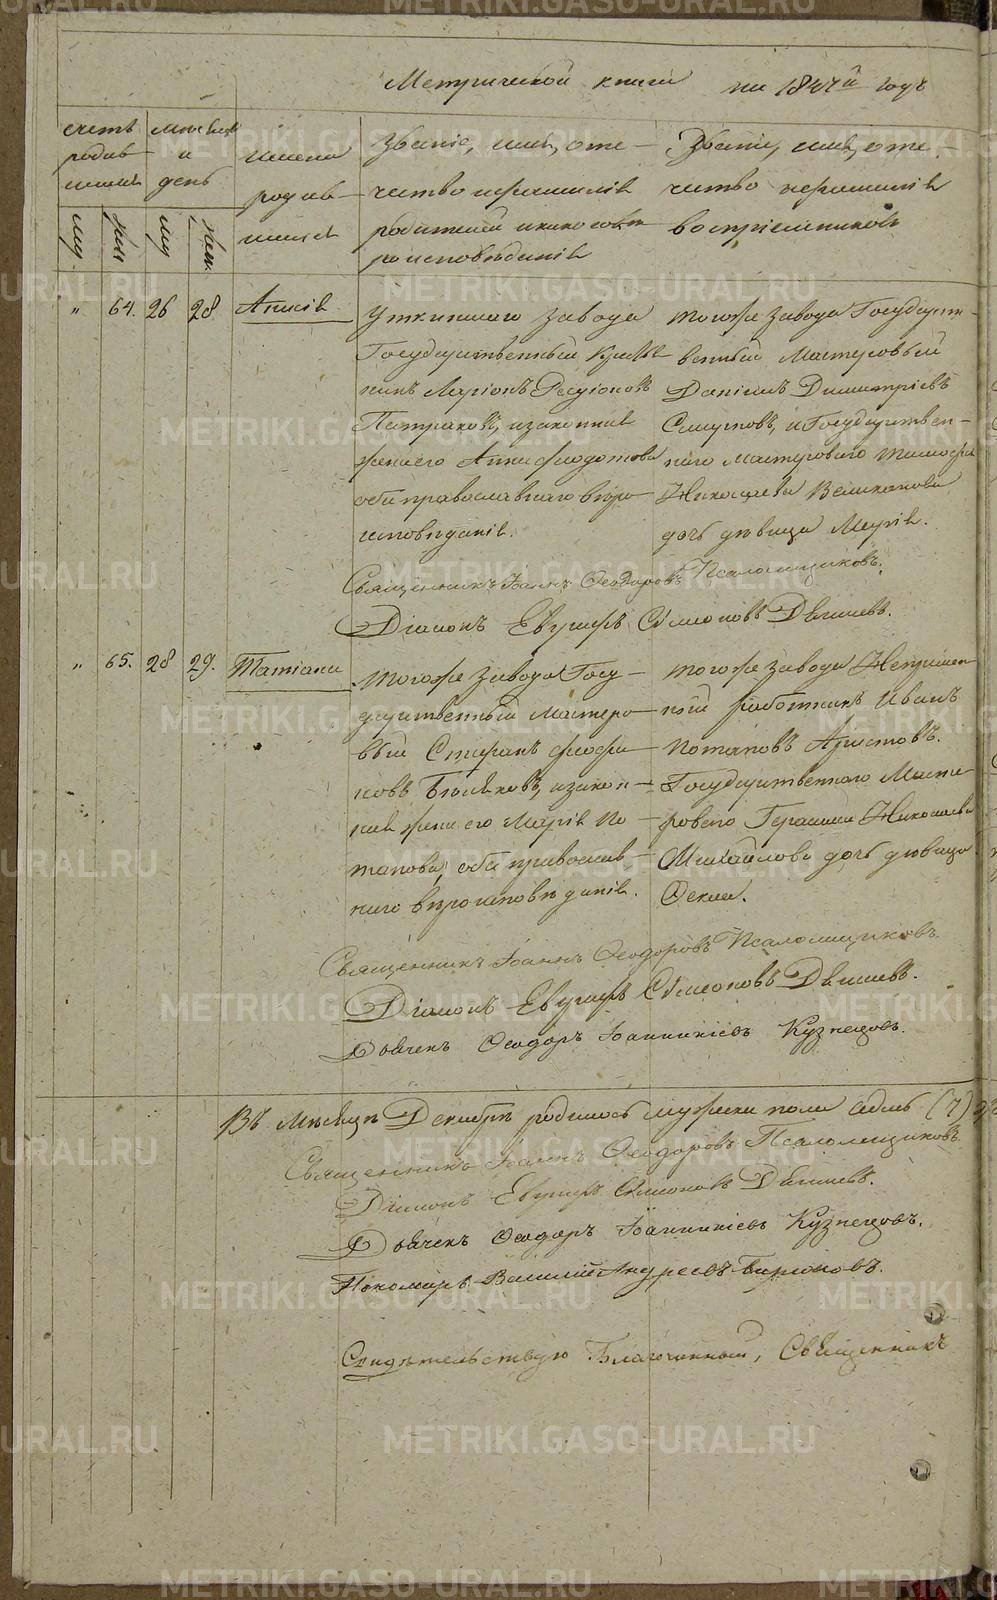 Метрической книги на 1847й годъ
счетъ родив- шихся
муж жен
месяцъ и день
муж жен.
имена родив- шихся
Званіе, имя, оте-
чество и фамилія
родителей и какого
вѣроисповѣданія
Званіе, имя, оте-
чество и фамилія
воспріемниковъ
„ 64. 26 28 Анисія
Уткинскаго завода
Государственный
Ларіонъ Родіоновъ
и законная
жена его Анна Федотова
оба православнаго вѣро-
исповѣданія.
того же завода Государст-
венный Мастеровый
Даніилъ Димитріевъ
Смирновъ, и Государствен-
наго Мастероваго Тимофея
Николаева Великанова
дочь дѣвица Марія.
Священникъ Іоаннъ Ѳеодоровъ Псаломщиковъ.
Діаконъ Евграфъ Симеоновъ
„ 65. 28 29. Татіана
того же завода Госу-
дарственный Мастеро-
вый Стефанъ
и закон-
ная жена его Марія По-
тапова, оба православ-
наго вѣроисповѣданія.
того же завода Непремен-
ный работникъ Иванъ
Потаповъ Аристовъ.
Государственнаго Масте-
роваго Герасима Николаева
Михайлова дочь дѣвица
Священникъ Іоаннъ Ѳеодоровъ Псаломщиковъ.
Діаконъ Евграфъ Симеоновъ
Дьячекъ Ѳеодоръ Іоанникіевъ Кузнецовъ.
Въ Мѣсяцѣ Декабрѣ родилось мужеска пола седмь (7)
Священникъ Іоаннъ Ѳеодоровъ Псаломщиковъ.
Діаконъ Евграфъ Симеоновъ
Дьячекъ Ѳеодоръ Іоанникіевъ Кузнецовъ.
Пономарь Василій Андреевъ
Свидѣтельствую Благочинный, Священникъ
METRIKI.GASO-URAL.RU